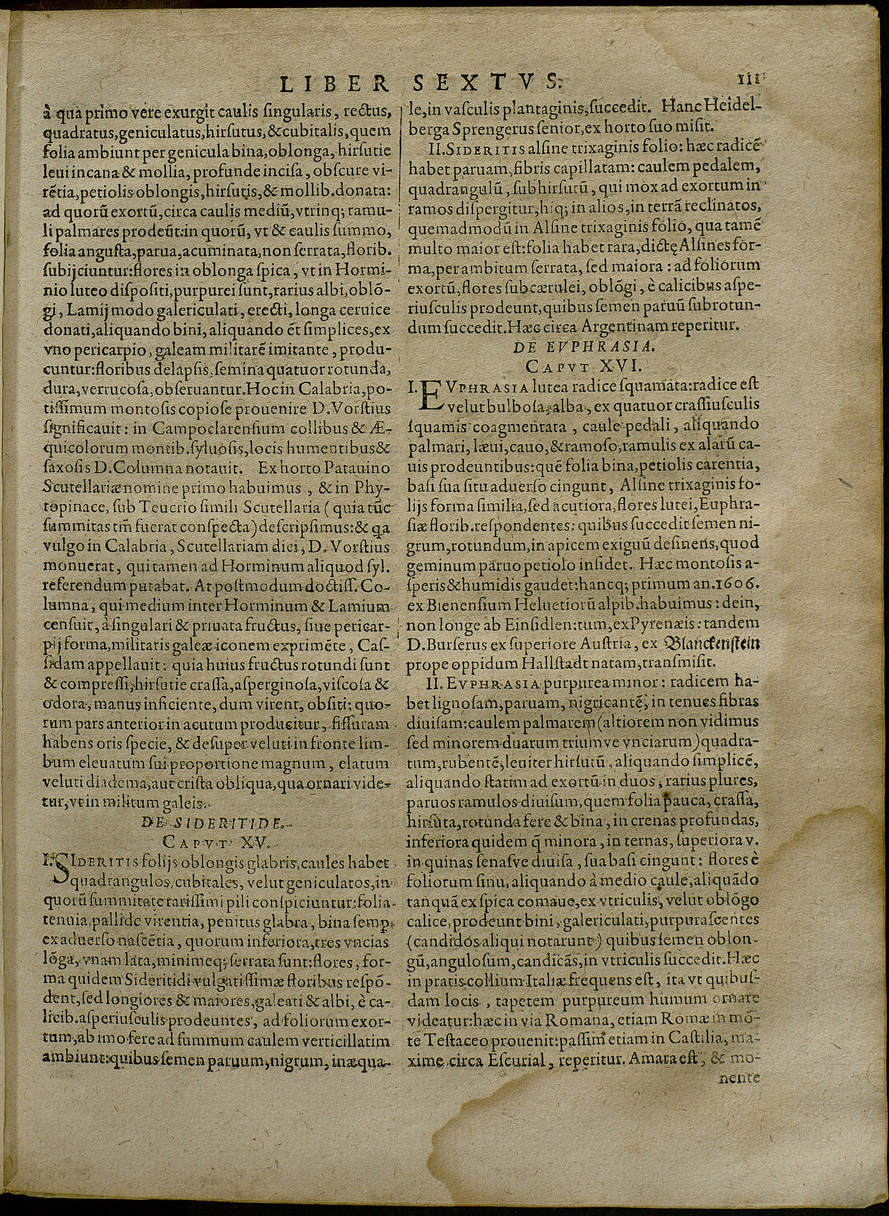 LIBER SEXTVS. 111
à qua primo vere exurgit caulis ſingularis, rectus,
quadratus, geniculatus, hirſutus, & cubitalis, quem
folia ambiunt per genicula bina, oblonga, hirſutie
leui incana & mollia, profunde inciſa, obſcure vi-
rẽtia, petiolis oblongis, hirſutis, & mollib. donata:
ad quorũ exortũ, circa caulis mediũ, vtrinq; ramu-
li palmares prodeũt: in quorũ, vt & caulis ſummo,
folia anguſta, parua, acuminata, non ſerrata, florib.
ſubijciuntur: flores in oblonga ſpica, vt in Hormi-
nio luteo diſpoſiti, purpurei ſunt, rarius albi, oblõ-
gi, Lamij modo galericulati, erecti, longa ceruice
donati, aliquando bini, aliquando ẽt ſimplices, ex
vno pericarpio, galeam militarẽ imitante, produ-
cuntur: floribus delapſis, ſemina quatuor rotunda,
dura, verrucoſa, obſeruantur. Hoc in Calabria, po-
tiſſimum montoſis copioſe prouenire D. Vorſtius
ſignificauit: in Campoclarenſium collibus & Æ-
quicolorum montib. ſyluoſis, locis humentibus &
ſaxoſis D. Columna notauit. Ex horto Patauino
Scutellariæ nomine primo habuimus, & in Phy-
topinace, ſub Teucrio ſimili Scutellaria (quia tũc
ſummitas tm̃ fuerat conſpecta) deſcripſimus: & qa
vulgo in Calabria, Scutellariam dici, D. Vorſtius
monuerat, qui tamen ad Horminum aliquod ſyl.
referendum putabat. At poſtmodum doctiſſ. Co-
lumna, qui medium inter Horminum & Lamium
cenſuit, à ſingulari & priuata fructus, ſiue pericar-
pij forma, militaris galeæ iconem exprimẽte, Caſ-
ſidam appellauit: quia huius fructus rotundi ſunt
& compreſſi, hirſutie craſſa, aſperginoſa, viſcoſa &
odora, manus inficiente, dum virent, obſiti: quo-
rum pars anterior in acutum producitur, fiſſuram
habens oris ſpecie, & deſuper veluti in fronte lim-
bum eleuatum ſui proportione magnum, elatum
veluti diadema, aut criſta obliqua, qua ornari vide-
tur, vt in militum galeis.
DE SIDERITIDE.
CAPVT XV.
I. SIDERITIS folijs oblongis glabris, caules habet
quadrangulos, cubitales, velut geniculatos, in
quorũ ſummitate rariſſimi pili conſpiciuntur: folia
tenuia, pallide virentia, penitus glabra, bina ſemp
ex aduerſo naſcẽtia, quorum inferiora, tres vncias
lõga, vnam lata, minimeq; ſerrata ſunt: flores, for-
ma quidem Sideritidi vulgatiſſimæ floribus reſpõ-
dent, ſed longiores & maiores, galeati & albi, è ca-
licib. aſperiuſculis prodeuntes, ad foliorum exor-
tum, ab imo fere ad ſummum caulem verticillatim
ambiunt: quibus ſemen paruum, nigrum, inæqua-
le, in vaſculis plantaginis, ſuccedit. Hanc Heidel-
berga Sprengerus ſenior, ex horto ſuo miſit.
II. SIDERITIS alſine trixaginis folio: hæc radicẽ
habet paruam, fibris capillatam: caulem pedalem,
quadrangulũ, ſubhirſutũ, qui mox ad exortum in
ramos diſpergitur, hiq; in alios, in terrã reclinatos,
quemadmodũ in Alſine trixaginis folio, qua tamẽ
multo maior eſt: folia habet rara, dictę Alſines for-
ma, per ambitum ſerrata, ſed maiora: ad foliorum
exortũ, flores ſubcærulei, oblõgi, è calicibus aſpe-
riuſculis prodeunt, quibus ſemen paruũ ſubrotun-
dum ſuccedit. Hæc circa Argentinam reperitur.
DE EVPHRASIA.
CAPVT XVI.
I. EVPHRASIA lutea radice ſquamata: radice eſt
velut bulboſa, alba, ex quatuor craſſiuſculis
ſquamis coagmentata, caule pedali, aliquando
palmari, læui, cauo, & ramoſo, ramulis ex alarũ ca-
uis prodeuntibus: quẽ folia bina, petiolis carentia,
baſi ſua ſitu aduerſo cingunt, Alſine trixaginis fo-
lijs forma ſimilia, ſed acutiora, flores lutei, Euphra-
ſiæ florib. reſpondentes: quibus ſuccedit ſemen ni-
grum, rotundum, in apicem exiguũ deſinens, quod
geminum paruo petiolo inſidet. Hæc montoſis a-
ſperis & humidis gaudet: hancq; primum an. 1606.
ex Bienenſium Heluetiorũ alpib. habuimus: dein,
non longe ab Einſidlen: tum, ex Pyrenæis: tandem
D. Burſerus ex ſuperiore Auſtria, ex Blanckenſtein
prope oppidum Hallſtadt natam, tranſmiſit.
II. EVPHRASIA purpurea minor: radicem ha-
bet lignoſam, paruam, nigricantẽ, in tenues fibras
diuiſam: caulem palmarem (altiorem non vidimus
ſed minorem duarum triumve vnciarum) quadra-
tum, rubentẽ, leuiter hirſutũ, aliquando ſimplicẽ,
aliquando ſtatim ad exortũ in duos, rarius plures,
paruos ramulos diuiſum, quem folia pauca, craſſa,
hirſuta, rotunda fere & bina, in crenas profundas,
inferiora quidem q̃ minora, in ternas, ſuperiora v.
in quinas ſenaſve diuiſa, ſua baſi cingunt: flores è
foliorum ſinu, aliquando à medio caule, aliquãdo
tanquã ex ſpica comaue, ex vtriculis, velut oblõgo
calice, prodeunt bini, galericulati, purpuraſcentes
(candidos aliqui notarunt) quibus ſemen oblon-
gũ, anguloſum, candicãs, in vtriculis ſuccedit. Hæc
in pratis collium Italiæ frequens eſt, ita vt quibuſ-
dam locis, tapetem purpureum humum ornare
videatur: hæc in via Romana, etiam Romæ in mõ-
te Teſtaceo prouenit: paſſim etiam in Caſtilia, ma-
xime circa Eſcurial, reperitur. Amara eſt, & mo-
nente